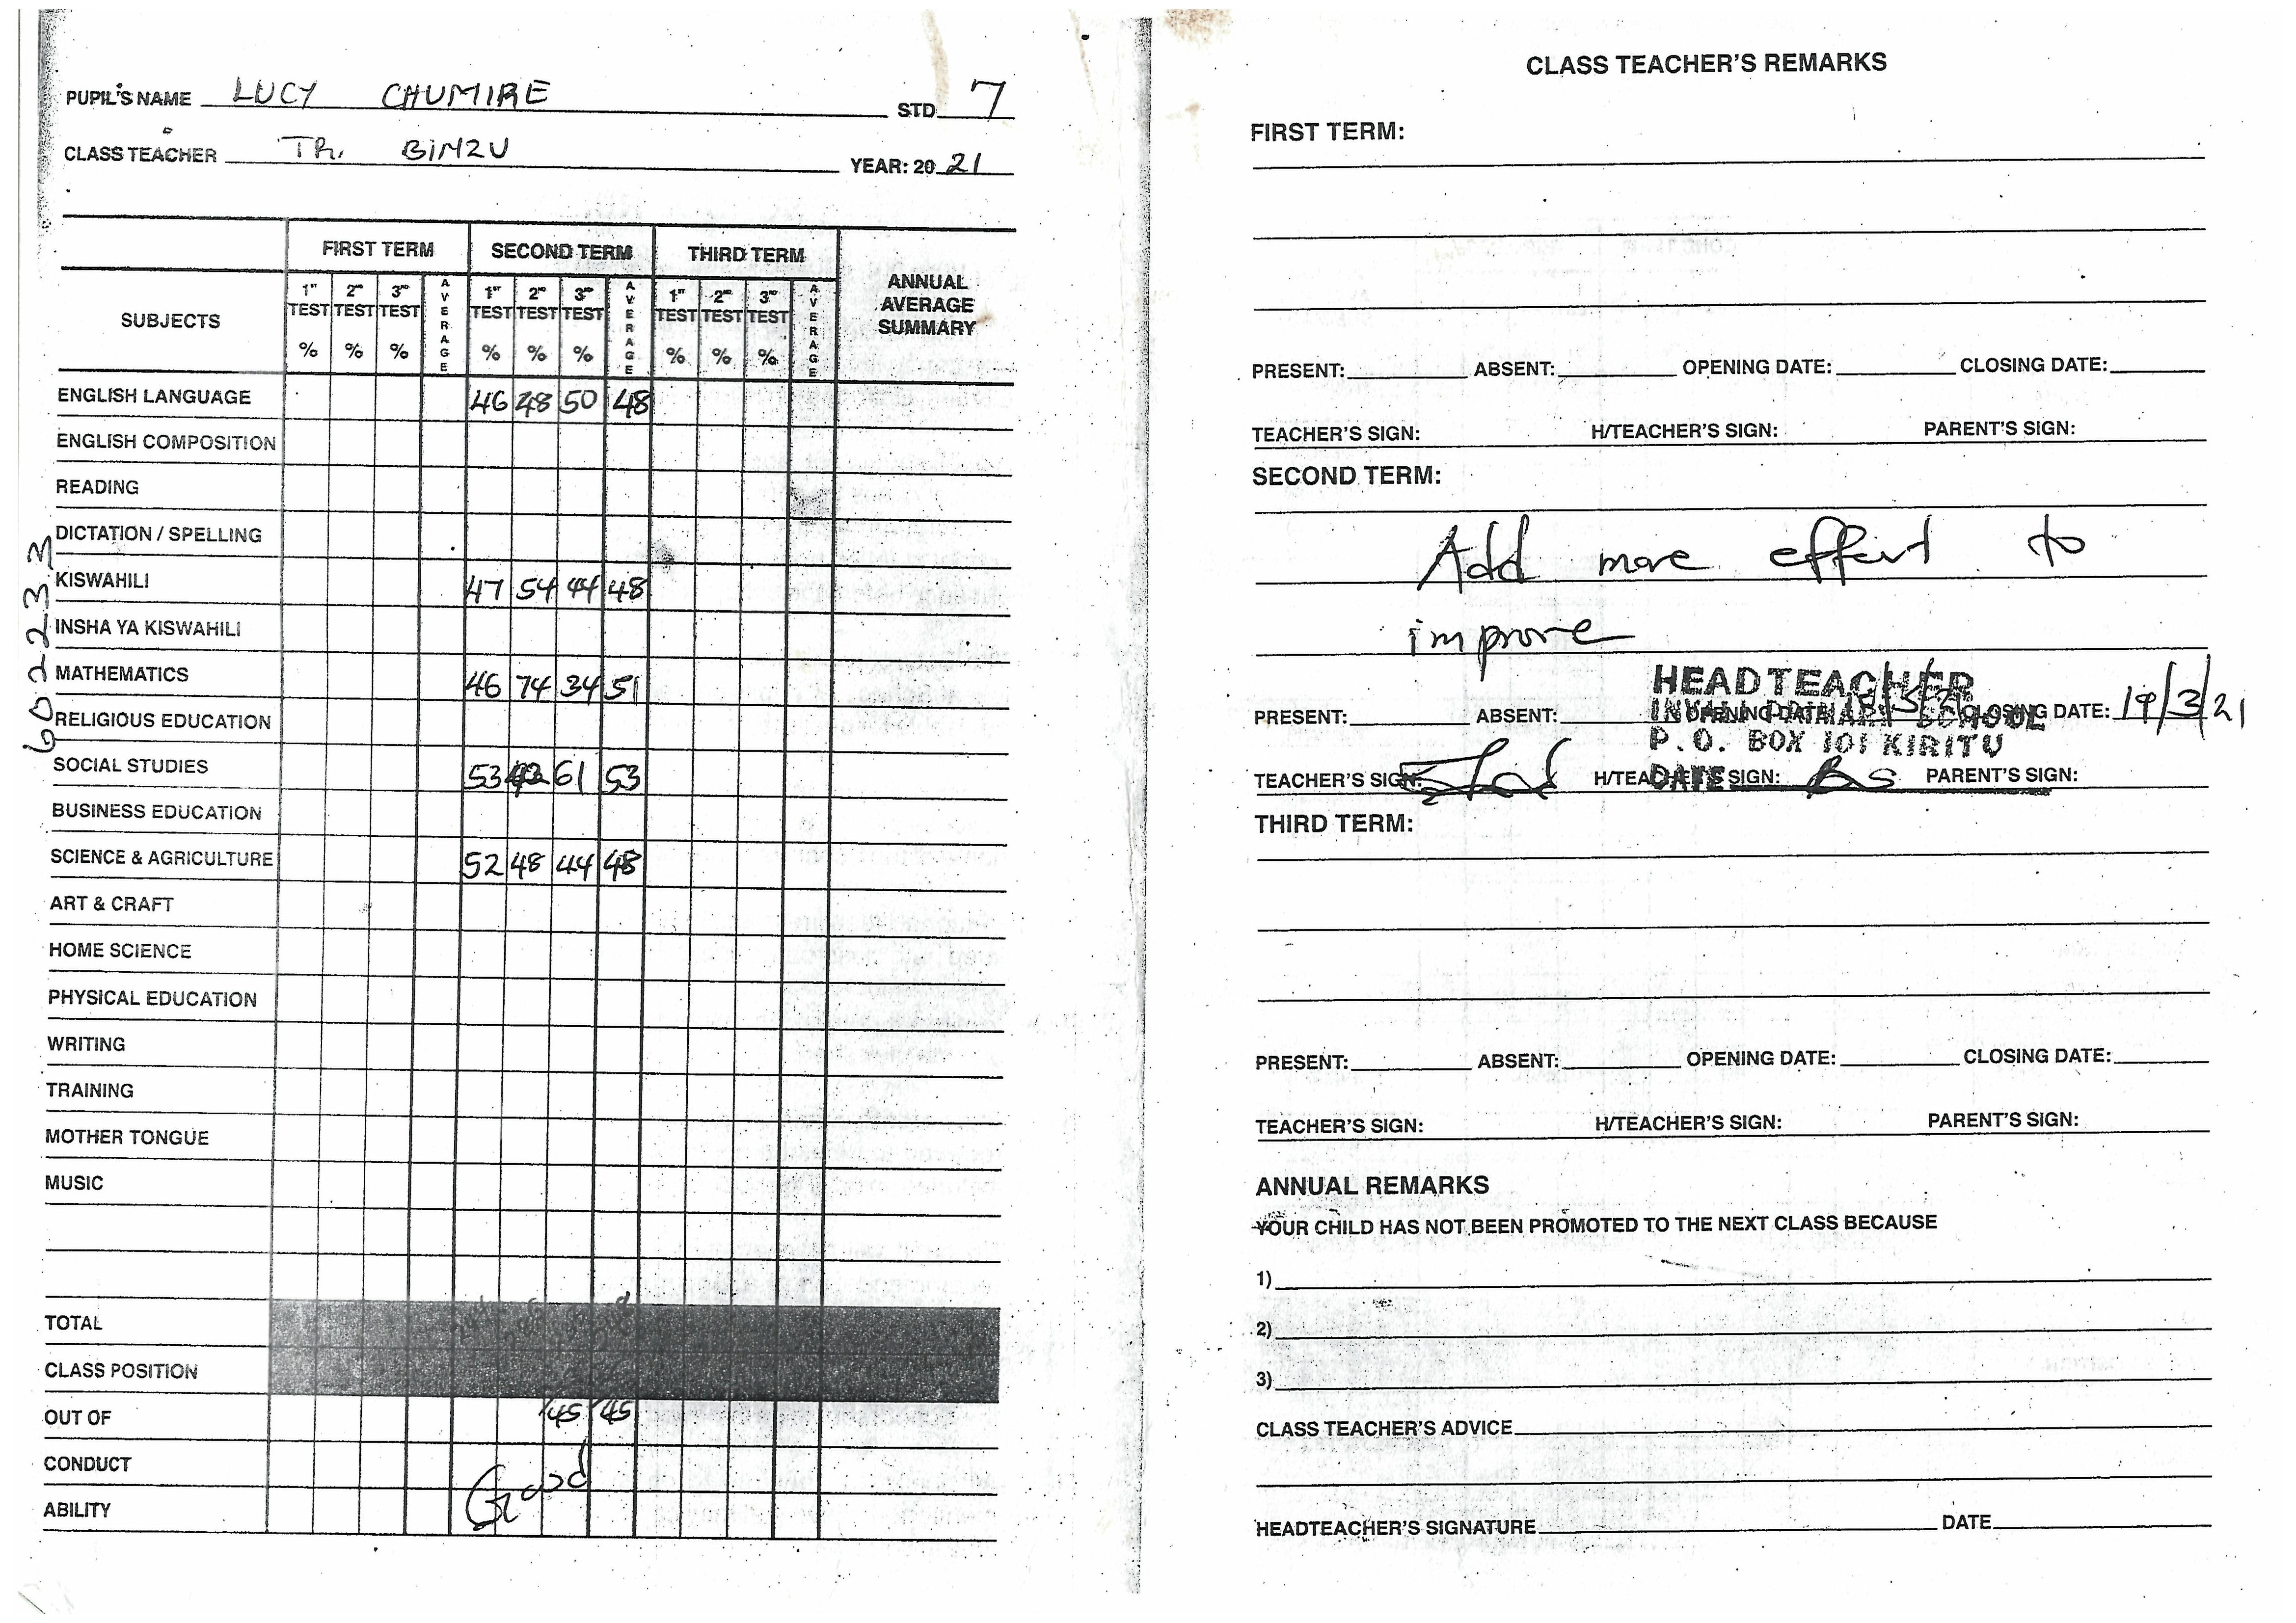 PUPIL'S NAME LUCY CHUMIRE STD 7
CLASS TEACHER TR. BINZU YEAR: 20 21
SUBJECTS FIRST TERM SECOND TERM THIRD TERM ANNUAL AVERAGE SUMMARY
1ST TEST % 2ND TEST % 3RD TEST % AVERAGE 1ST TEST % 2ND TEST % 3RD TEST % AVERAGE 1ST TEST % 2ND TEST % 3RD TEST % AVERAGE
ENGLISH LANGUAGE 46 48 50 48
ENGLISH COMPOSITION
READING
DICTATION / SPELLING
KISWAHILI 47 54 44 48
INSHA YA KISWAHILI
MATHEMATICS 46 74 34 51
RELIGIOUS EDUCATION
SOCIAL STUDIES 53 42 61 53
BUSINESS EDUCATION
SCIENCE & AGRICULTURE 52 48 44 48
ART & CRAFT
HOME SCIENCE
PHYSICAL EDUCATION
WRITING
TRAINING
MOTHER TONGUE
MUSIC
TOTAL
CLASS POSITION
OUT OF 45 45
CONDUCT Good
ABILITY
6022333
CLASS TEACHER'S REMARKS
FIRST TERM:
PRESENT: ABSENT: OPENING DATE: CLOSING DATE:
TEACHER'S SIGN: H/TEACHER'S SIGN: PARENT'S SIGN:
SECOND TERM:
Add more effort to
improve
HEADTEACHER
PRESENT: ABSENT: OPENING DATE: CLOSING DATE: 19/3/21
PRIMARY SCHOOL
P.O. BOX 101 KIRITU
TEACHER'S SIGN: H/TEACHER'S SIGN: PARENT'S SIGN:
DATE
THIRD TERM:
PRESENT: ABSENT: OPENING DATE: CLOSING DATE:
TEACHER'S SIGN: H/TEACHER'S SIGN: PARENT'S SIGN:
ANNUAL REMARKS
YOUR CHILD HAS NOT BEEN PROMOTED TO THE NEXT CLASS BECAUSE
1)
2)
3)
CLASS TEACHER'S ADVICE
HEADTEACHER'S SIGNATURE DATE